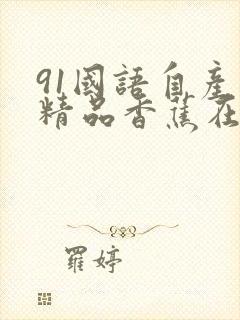 91國語自產
精品香蕉在
羅婷